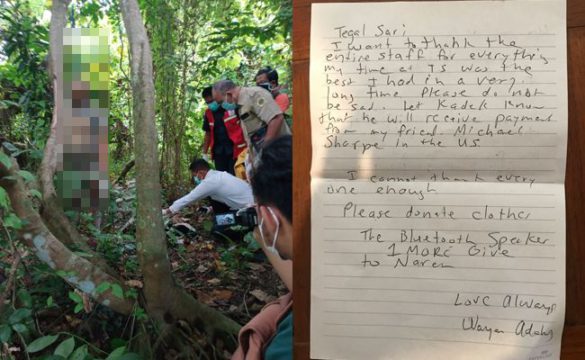 Tegal Sari
I want to thank the
entire staff for everything
my time at TS was the
best I had in a very
long time Please do not
be sad. Let Kadek Know
that he will receive payment
from my friend Michael
Sharpe in the US
I cannot thank every
one enough
Please donate clothes
The Bluetooth Speaker
1 MORE Give
to Naren
Love Always
Wayan